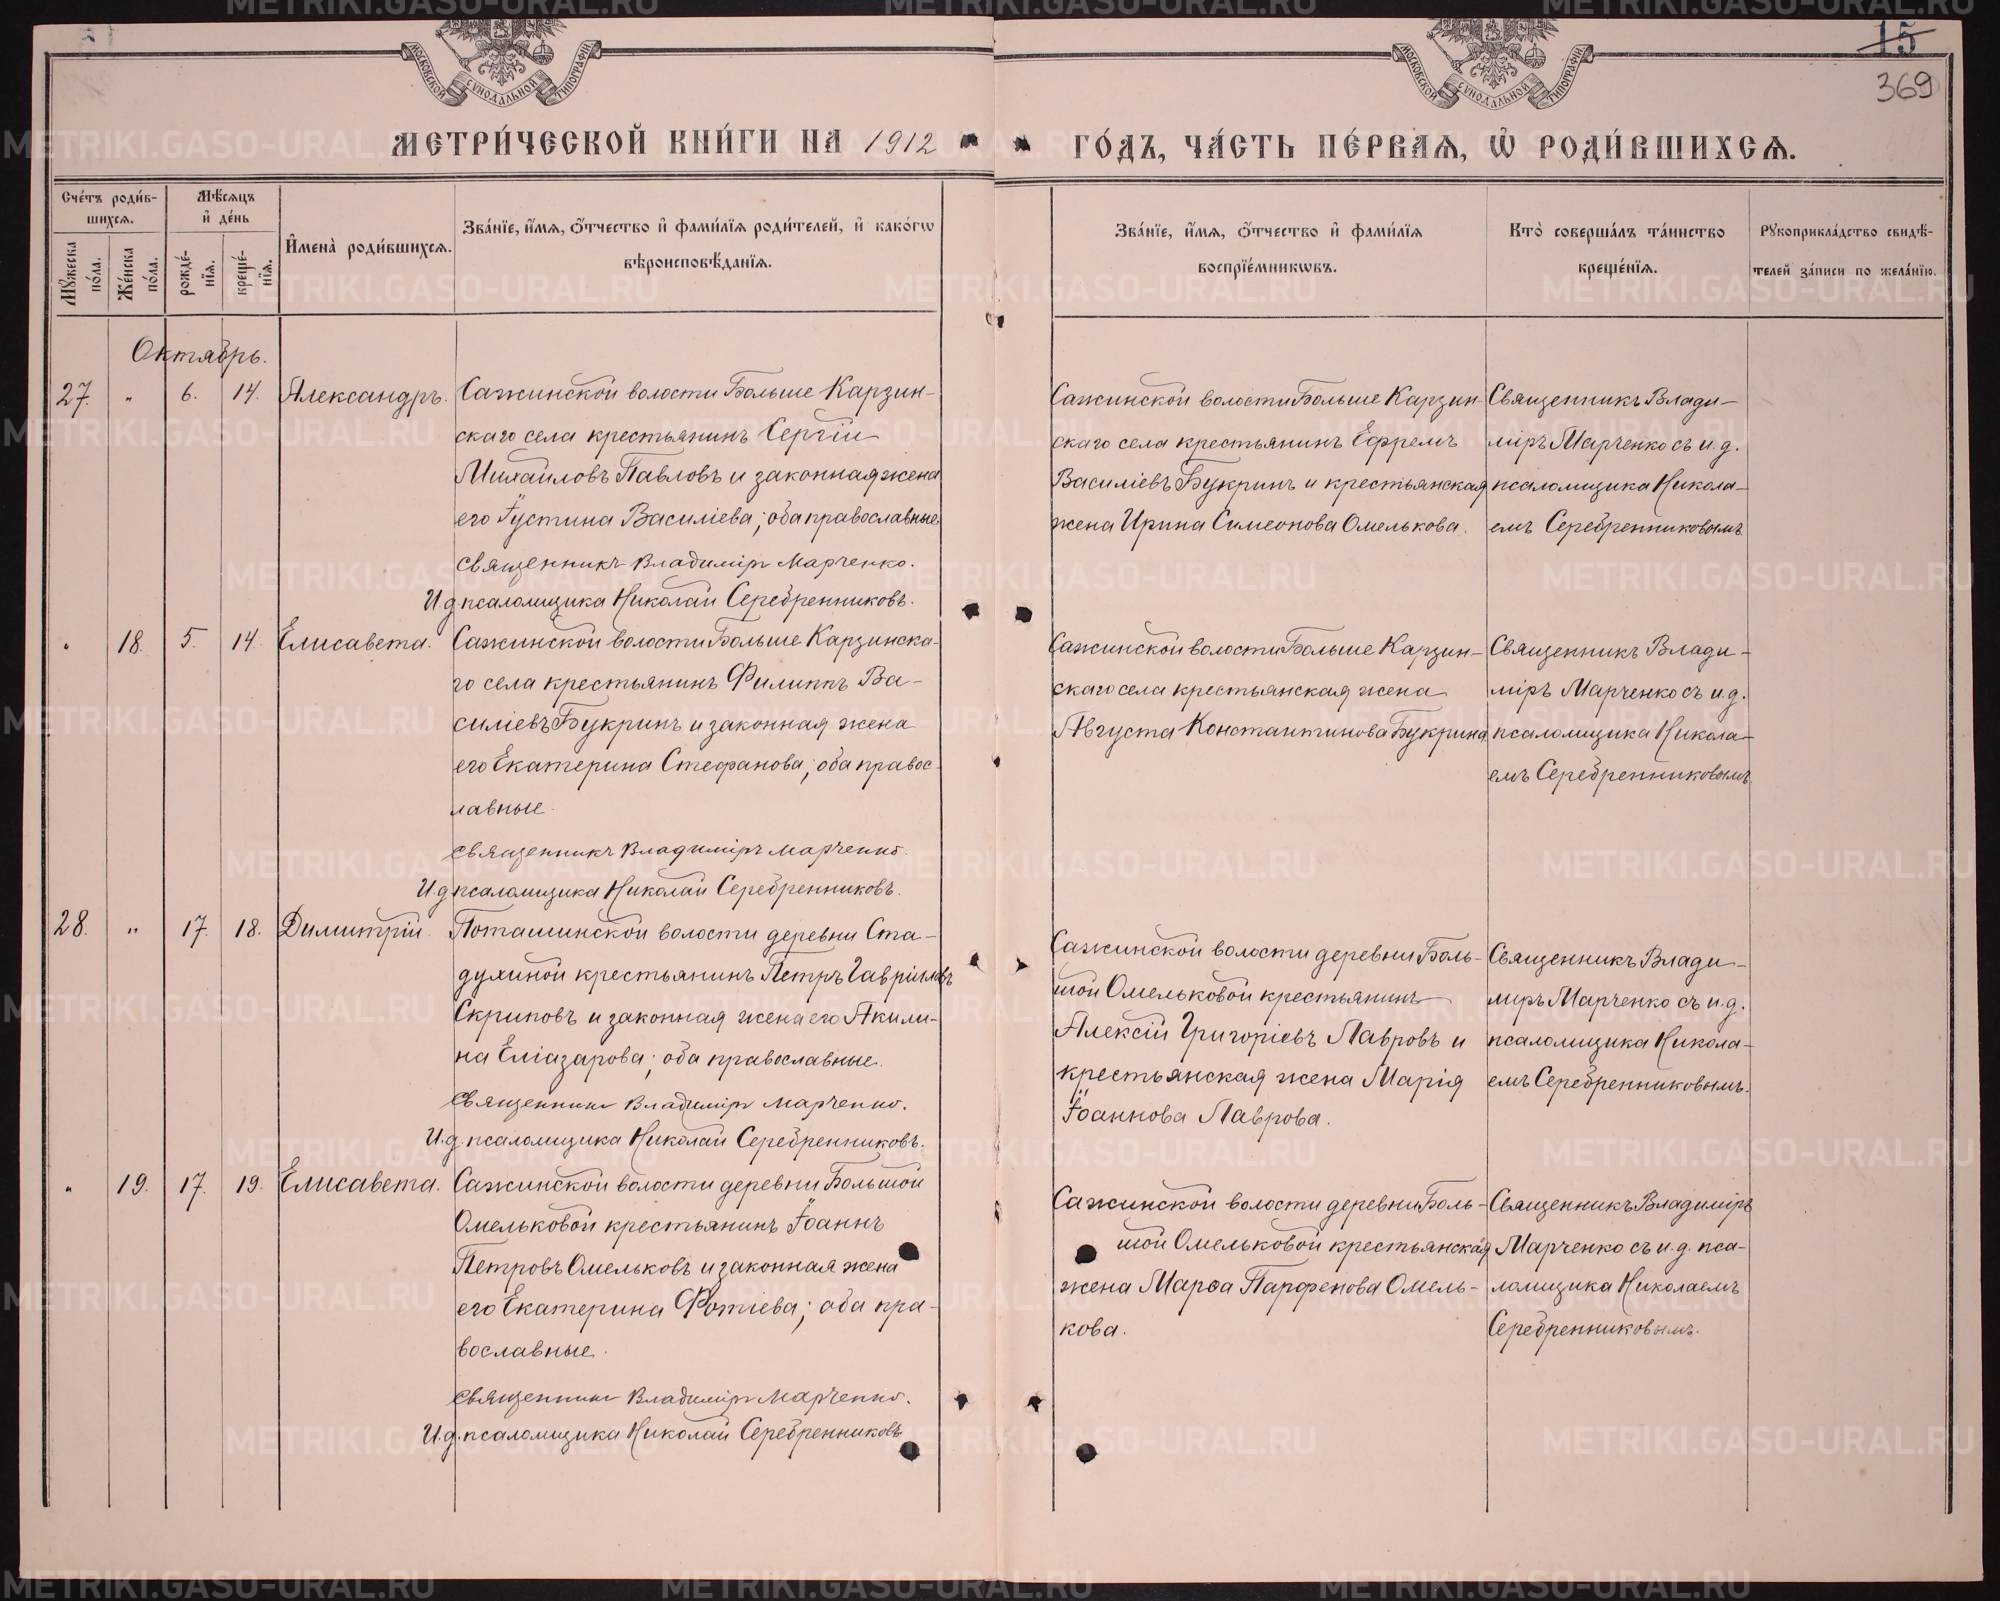 МОСКОВСКОЙ СѴНОДАЛЬНОЙ ТИПОГРАФІИ
МОСКОВСКОЙ СѴНОДАЛЬНОЙ ТИПОГРАФІИ
15
369
МЕТРИ́ЧЕСКОЙ КНИ́ГИ НА 1912
ГО́ДЪ, ЧА́СТЬ ПЕ́РВАѦ, Ѡ҆ РОДИ́ВШИХСѦ.
Сче́тъ роди́в-
шихсѧ.
Мѣ́сѧцъ
и҆ де́нь
Мꙋ́жеска
по́ла.
Же́нска
по́ла.
рожде́-
нїѧ.
креще́-
нїѧ.
И҆мена̀ роди́вшихсѧ.
Зва́нїе, и҆́мѧ, ѻ҆́тчество и҆ фами́лїѧ роди́телей, и҆ како́гѡ
вѣроисповѣ́данїѧ.
Зва́нїе, и҆́мѧ, ѻ҆́тчество и҆ фами́лїѧ
воспрїе́мникѡвъ.
Кто̀ соверша́лъ та́инство
креще́нїѧ.
Рꙋкоприкла́дство свидѣ́-
телей за́писи по жела́нїю.
Октябрь.
27. " 6. 14. Александръ.
Сажинской волости Больше Карзин-
скаго села крестьянинъ Сергій
Михайловъ Павловъ и законная жена
его Іустина Василіева; оба православные
Священникъ Владиміръ Марченко.
И.д. псаломщика Николай Серебренниковъ.
Сажинской волости Больше Карзин-
скаго села крестьянинъ Ефремъ
Василіевъ Букринъ и крестьянская
жена Ирина Симеонова Омелькова.
Священникъ Влади-
міръ Марченко съ и.д.
псаломщика Никола-
емъ Серебренниковымъ
" 18. 5. 14. Елисавета.
Сажинской волости Больше Карзинска-
го села крестьянинъ Филиппъ Ва-
силіевъ Букринъ и законная жена
его Екатерина Стефанова; оба правос-
лавные.
Священникъ Владиміръ Марченко.
И.д. псаломщика Николай Серебренниковъ.
Сажинской волости Больше Карзин-
скаго села крестьянская жена
Августа Константинова Букрина
Священникъ Влади-
міръ Марченко съ и.д.
псаломщика Никола-
емъ Серебренниковымъ
28. " 17. 18. Димитрій.
Поташинской волости деревни Ста-
духиной крестьянинъ Петръ Гавріиловъ
Скриповъ и законная жена его Акили-
на Еліазарова; оба православные.
Священникъ Владиміръ Марченко.
И.д. псаломщика Николай Серебренниковъ.
Сажинской волости деревни Боль-
шой Омельковой крестьянинъ
Алексій Григоріевъ Лавровъ и
крестьянская жена Марія
Іоаннова Лаврова.
Священникъ Влади-
миръ Марченко съ и.д.
псаломщика Никола-
емъ Серебренниковымъ.
" 19. 17. 19. Елисавета.
Сажинской волости деревни Большой
Омельковой крестьянинъ Іоаннъ
Петровъ Омельковъ и законная жена
его Екатерина Фотіева; оба пра-
вославные.
Священникъ Владиміръ Марченко.
И.д. псаломщика Николай Серебренниковъ
Сажинской волости деревни Боль-
шой Омельковой крестьянская
жена Марѳа Парфенова Омель-
кова.
Священникъ Владиміръ
Марченко съ и.д. пса-
ломщика Николаемъ
Серебренниковымъ.
METRIKI.GASO-URAL.RU